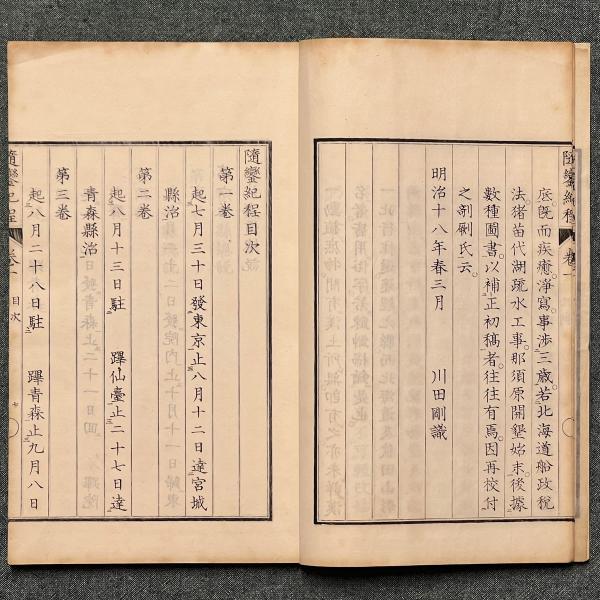 隨鑾紀程 卷一
底。既而疾癒。淨寫。事涉三歳。若北海道船政税
法。猪苗代湖疏水工事。那須原開墾始末。後據
數種圖書。以補正初稿者。往往有焉。因再校付
之剞劂氏云。
明治十八年春三月 川田剛識
隨鑾紀程目次
第一卷
起七月三十日發東京止八月十二日達宮城
縣治
第二卷
起八月十三日駐 蹕仙臺止二十七日達
青森縣治
第三卷
起八月二十八日駐 蹕青森止九月八日
隨鑾紀程 卷一 目次 七